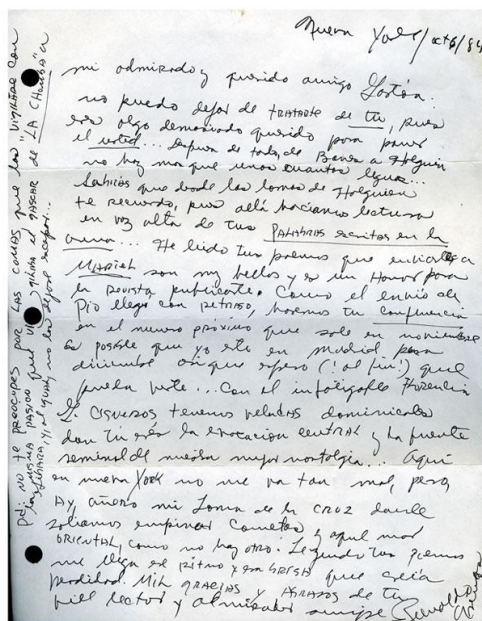 Nueva York/oct 6/84
mi admirado y querido amigo Gastón:
no puedo dejar de TRATARTE de tú, pues
eres algo demasiado querido para poner
el usted... después de todo, de Banes a Holguín
no hay más que unas cuantas leguas...
Sabrás que desde las lomas de Holguín
te recuerdo, pues allá hacíamos lecturas
en voz alta de tus PALABRAS escritas en la
arena... He leído tus poemas que enviaste a
MARIEL son muy bellos y es un Honor para
la revista publicarte. Como el envío de
Pío llegó con retraso, haremos tu conferencia
en el número próximo que sale en noviembre
Es posible que yo esté en Madrid para
diciembre así que espero (¡al fin!) que
pueda verte... Con el infatigable Florencio
G. Cisneros tenemos veladas dominicales
donde tú eres la evocación central y la fuente
seminal de nuestra mejor nostalgia... Aquí
en nueva York no me va tan mal, pero,
Ay, añoro mi Loma de la CRUZ donde
solíamos empinar Cometas y aquel mar
ORIENTAL, como no hay otro. Leyendo tus poemas
me llega el ritmo y esa BRISA que creía
perdidos. Mil GRACIAS y ABRAZOS de tu
fiel lector y admirador amigo Reinaldo Arenas
pd: NO te preocupes por LAS COMAS que las VIGILARÉ con
la misma pasión que vigilaba el MASCAR de "LA Chacota" a